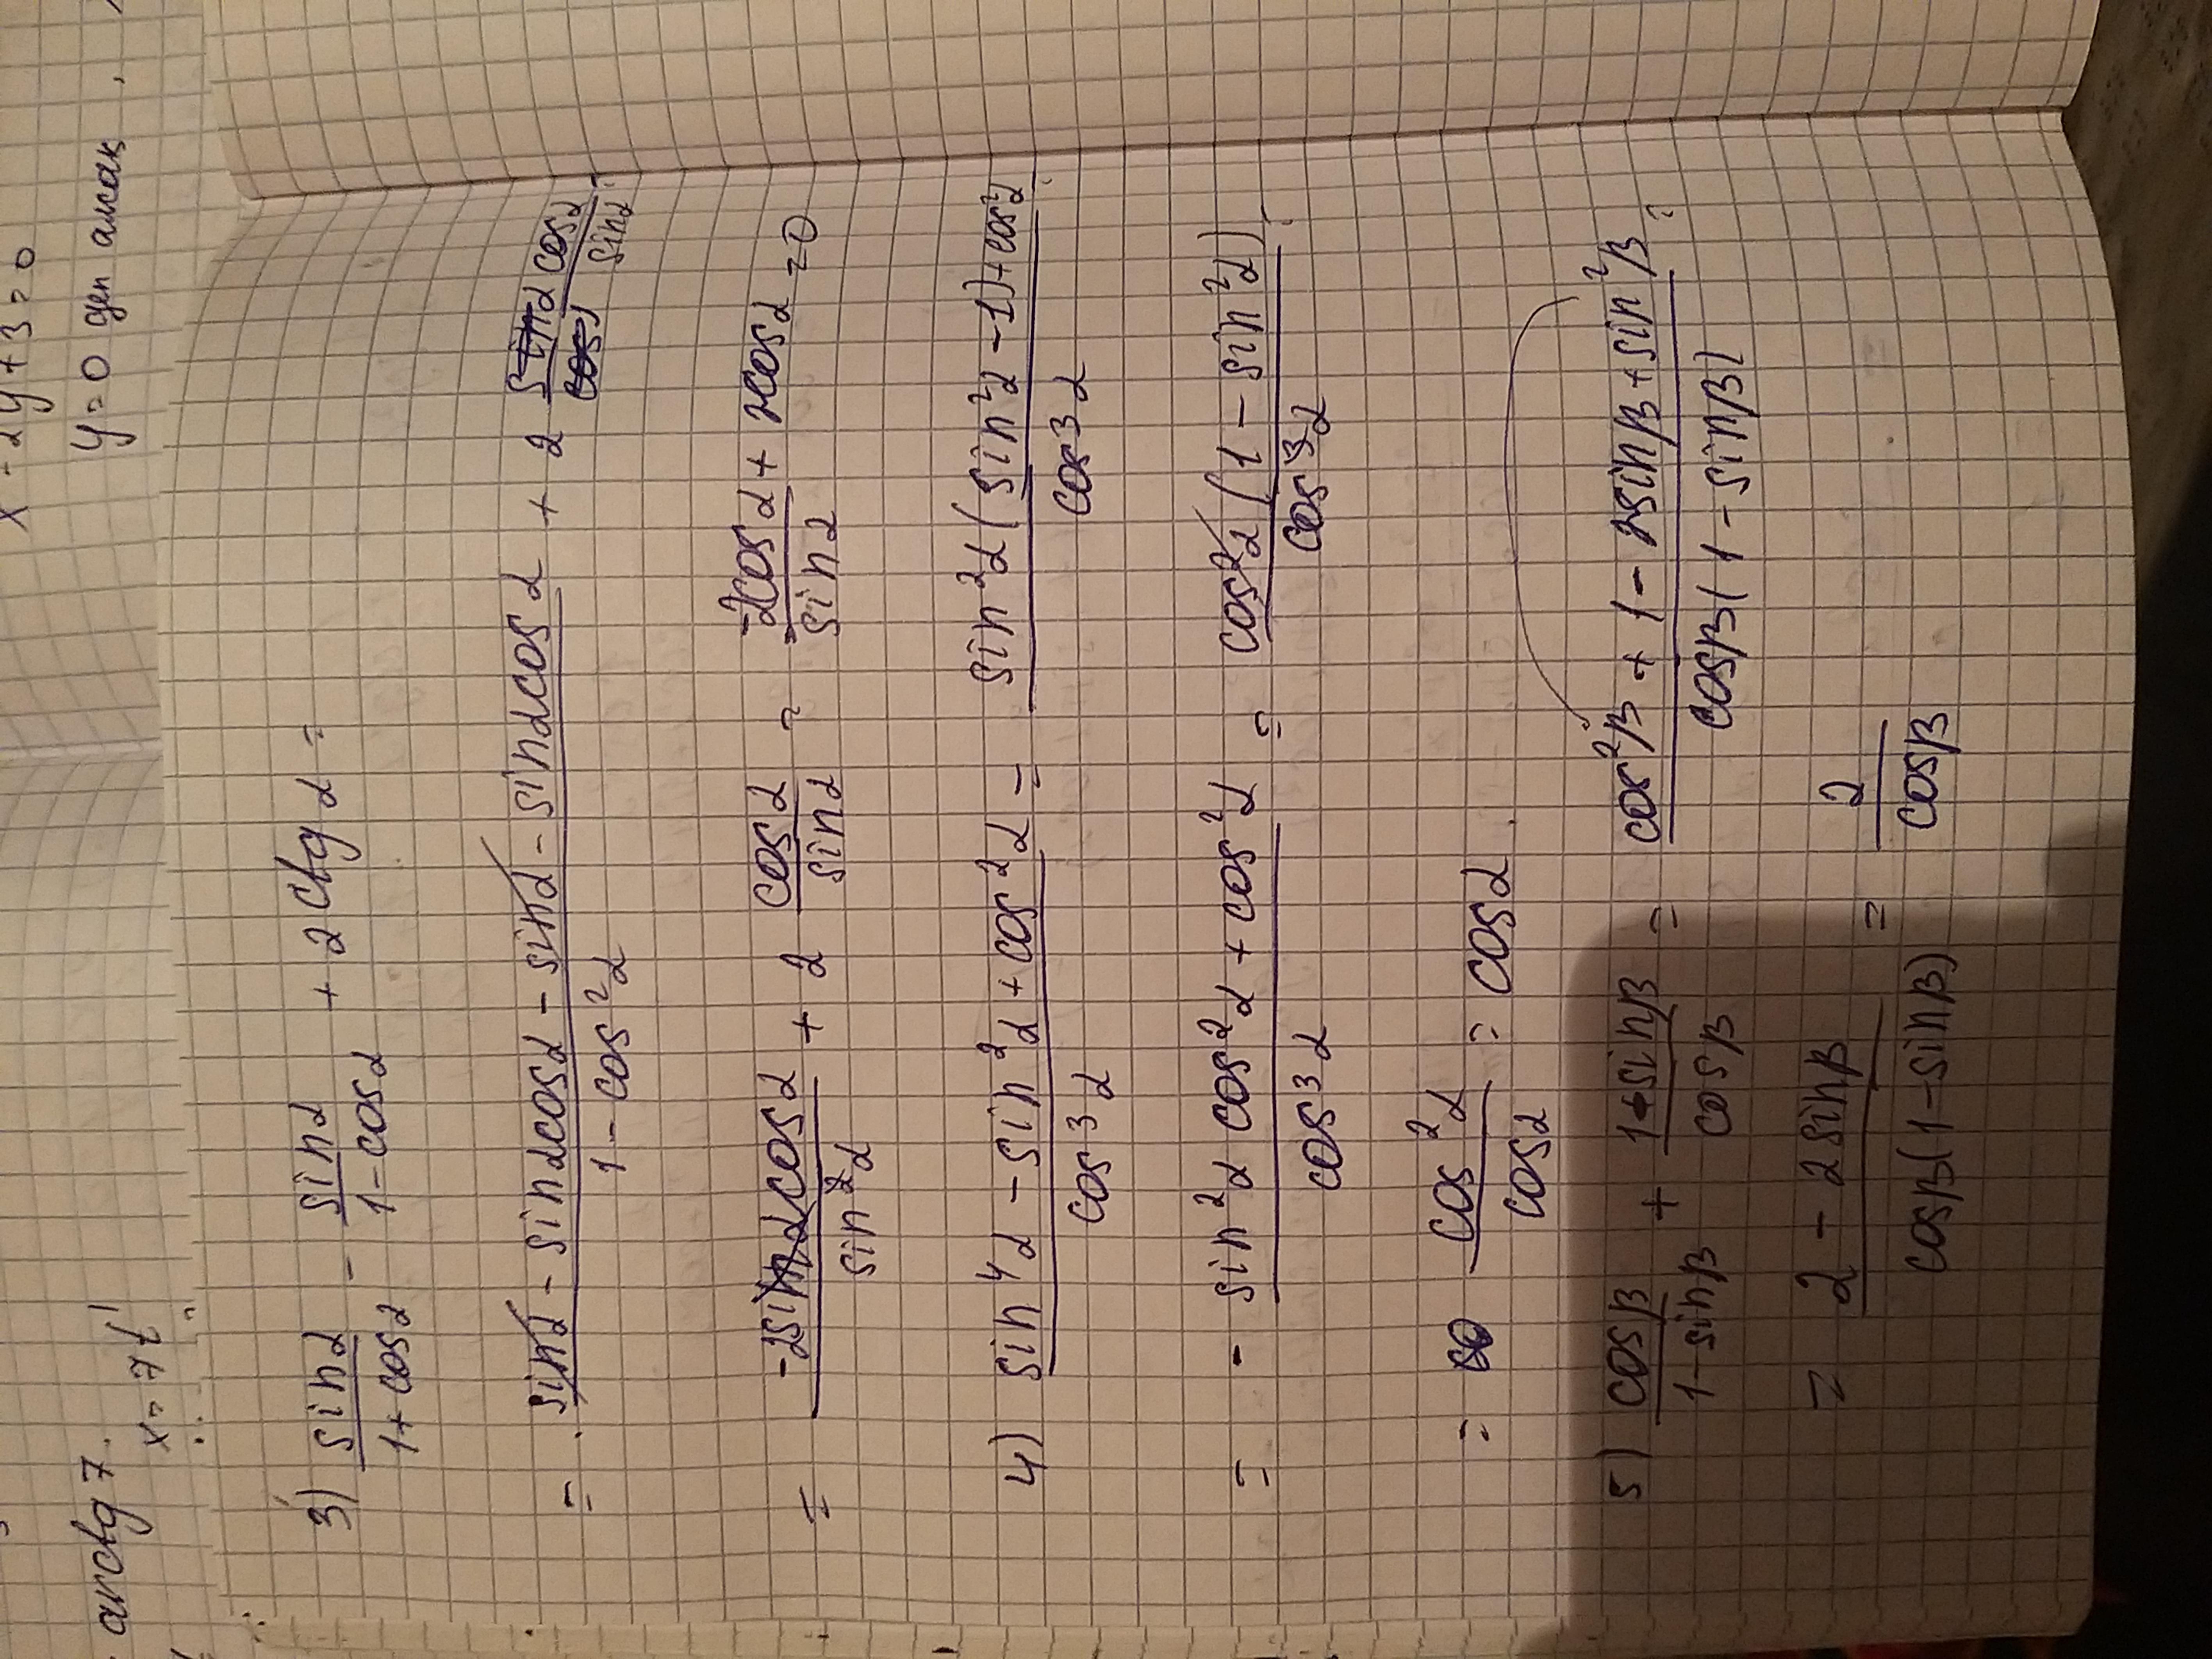 x - 2y + 3 = 0
y = 0 деп алсақ,
arctg 7.
x = 7t
3) sinα/(1+cosα) - sinα/(1-cosα) + 2ctgα =
= (sinα - sinαcosα - sinα - sinαcosα)/(1-cos²α) + 2 cosα/sinα =
= -2sinαcosα/sin²α + 2 cosα/sinα = (-2cosα + 2cosα)/sinα = 0
4) (sin⁴α - sin²α + cos²α)/cos³α = (sin²α(sin²α - 1) + cos²α)/cos³α =
= (-sin²α cos²α + cos²α)/cos³α = cos²α(1 - sin²α)/cos³α =
= cos²α/cosα = cosα
5) cosβ/(1-sinβ) + (1-sinβ)/cosβ = (cos²β + 1 - 2sinβ + sin²β)/(cosβ(1-sinβ)) =
= (2 - 2sinβ)/(cosβ(1-sinβ)) = 2/cosβ